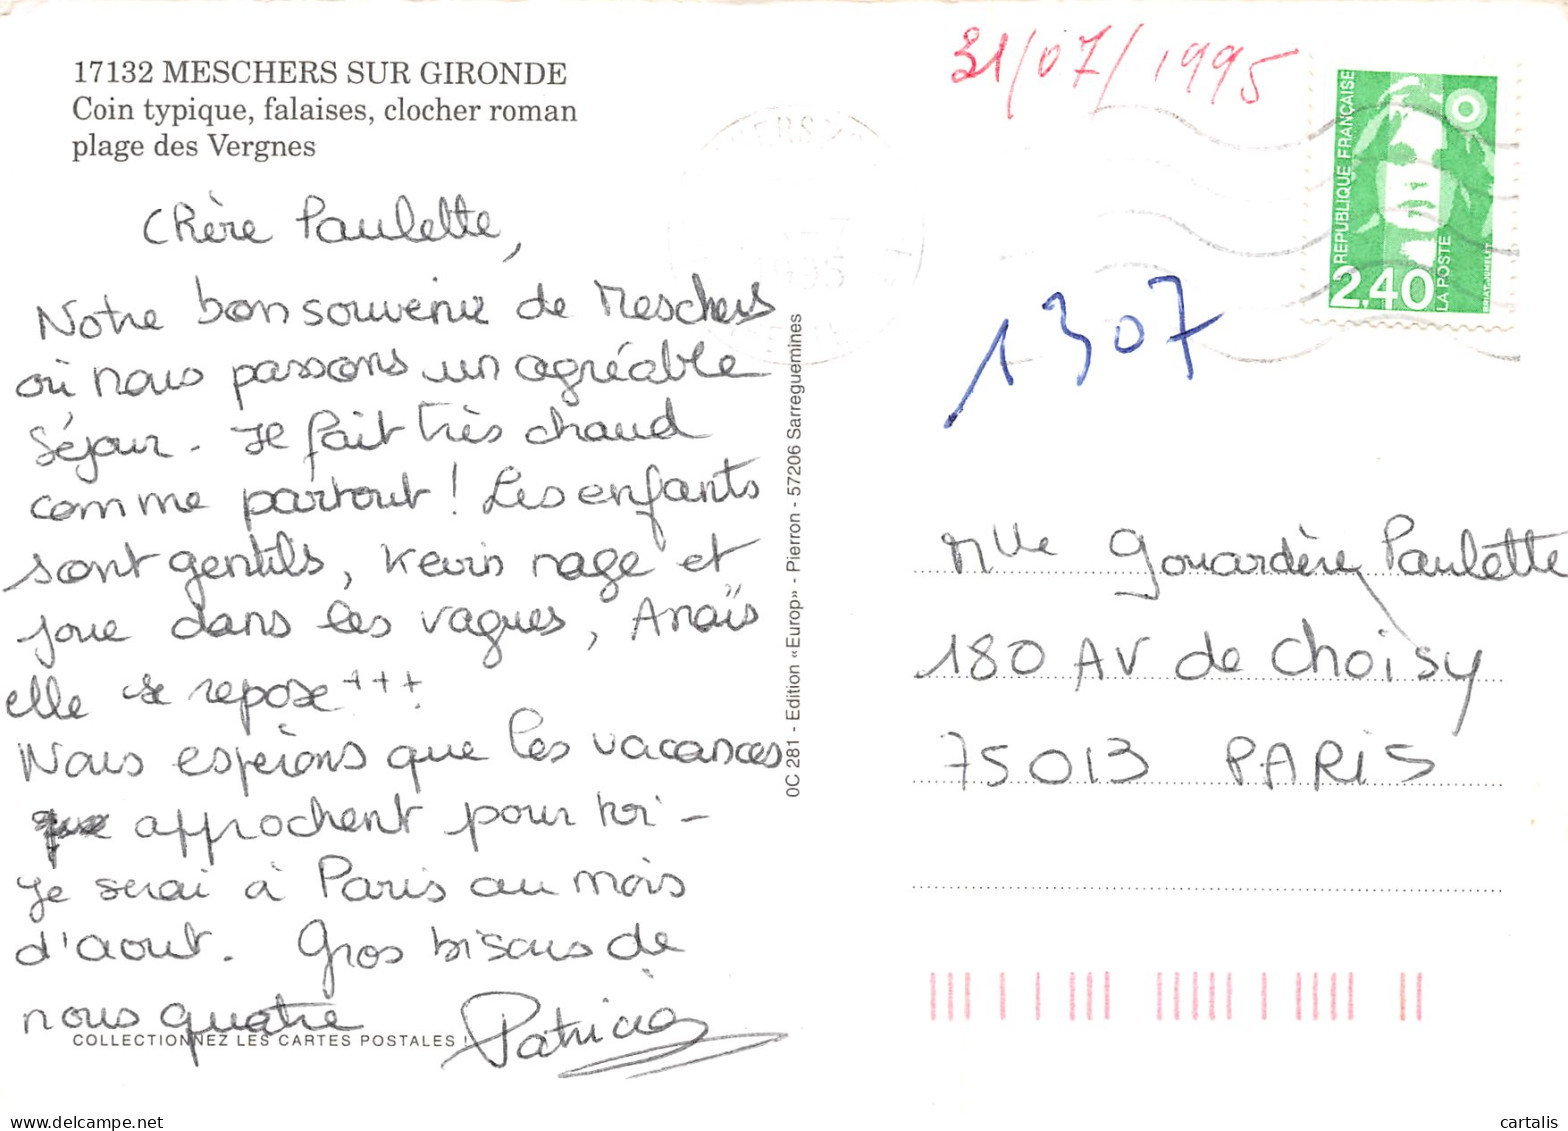 17132 MESCHERS SUR GIRONDE
Coin typique, falaises, clocher roman
plage des Vergnes
Chère Paulette,
Notre bon souvenir de Meschers
où nous passons un agréable
séjour. Il fait très chaud
comme partout ! Les enfants
sont gentils, Kevin nage et
joue dans les vagues, Anaïs
elle se repose +++
Nous espérons que les vacances
approchent pour toi -
Je serai à Paris au mois
d'aout. Gros bisous de
nous quatre Patricia
COLLECTIONNEZ LES CARTES POSTALES !
OC 281 - Edition «Europ» - Pierron - 57206 Sarreguemines
31/07/1995
REPUBLIQUE FRANÇAISE
2,40
LA POSTE
BRIAT-JUMELET
1995
1307
Mlle Gouardère Paulette
180 AV de Choisy
75013 PARIS
delcampe.net
cartalis